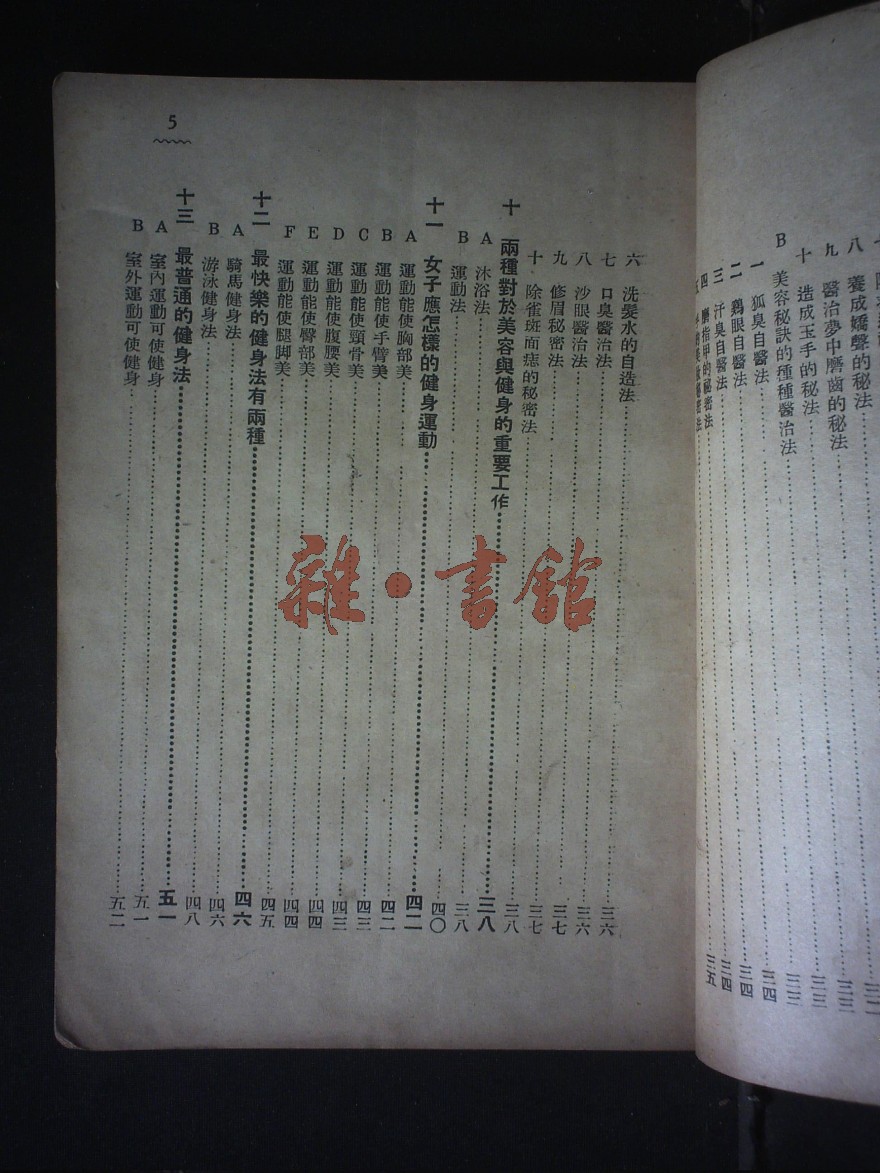 八 養成嬌聲的秘法
九 醫治夢中磨齒的秘法……三三
十 造成玉手的秘法……三三
B 美容秘訣的種種醫治法……三三
一 狐臭自醫法……三四
二 鷄眼自醫法……三四
三 汗臭自醫法……三四
四 指甲的秘密法……三五
六 洗髮水的自造法……三六
七 口臭醫治法……三六
八 沙眼醫治法……三七
九 修眉秘密法……三七
十 除雀斑面痣的秘密法……三八
十 兩種對於美容與健身的重要工作……三八
A 沐浴法……三八
B 運動法……四〇
十一 女子應怎樣的健身運動……四二
A 運動能使胸部美……四二
B 運動能使手臂美……四三
C 運動能使頸骨美……四三
D 運動能使腹腰美……四四
E 運動能使臀部美……四四
F 運動能使腿脚美……四五
十二 最快樂的健身法有兩種……四六
A 騎馬健身法……四六
B 游泳健身法……四八
十三 最普通的健身法……五一
A 室內運動可使健身……五一
B 室外運動可使健身……五二
5
雜·書館